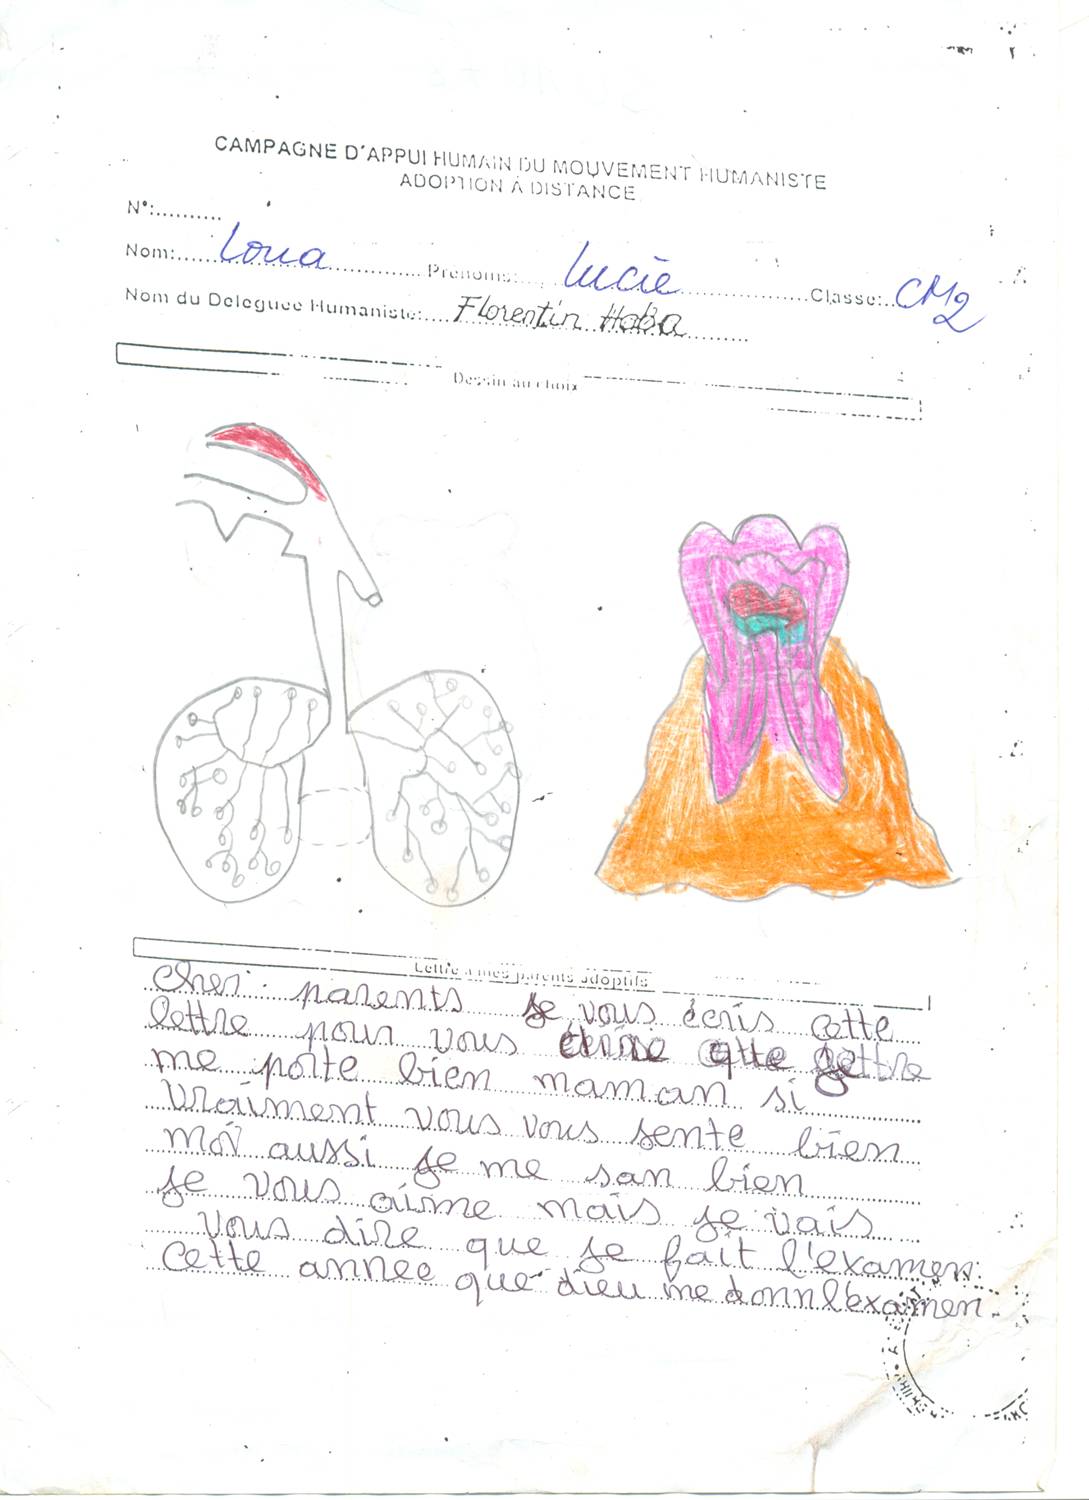 CAMPAGNE D'APPUI HUMAIN DU MOUVEMENT HUMANISTE
ADOPTION À DISTANCE
N°:..........
Nom:.....Loua.............Prénoms:...Lucie..................Classe:..CM2
Nom du Deleguee Humaniste:....Florentin Haba..........
Dessin au choix
Lettre a mes parents adoptifs
cher: parents je vous écris cette
lettre pour vous écrire cette lettre
me porte bien maman si
vraiment vous vous sente bien
moi aussi je me san bien
je vous aime mais je vais
vous dire que je fait l'examen
cette annee que dieu me donnl'examen.